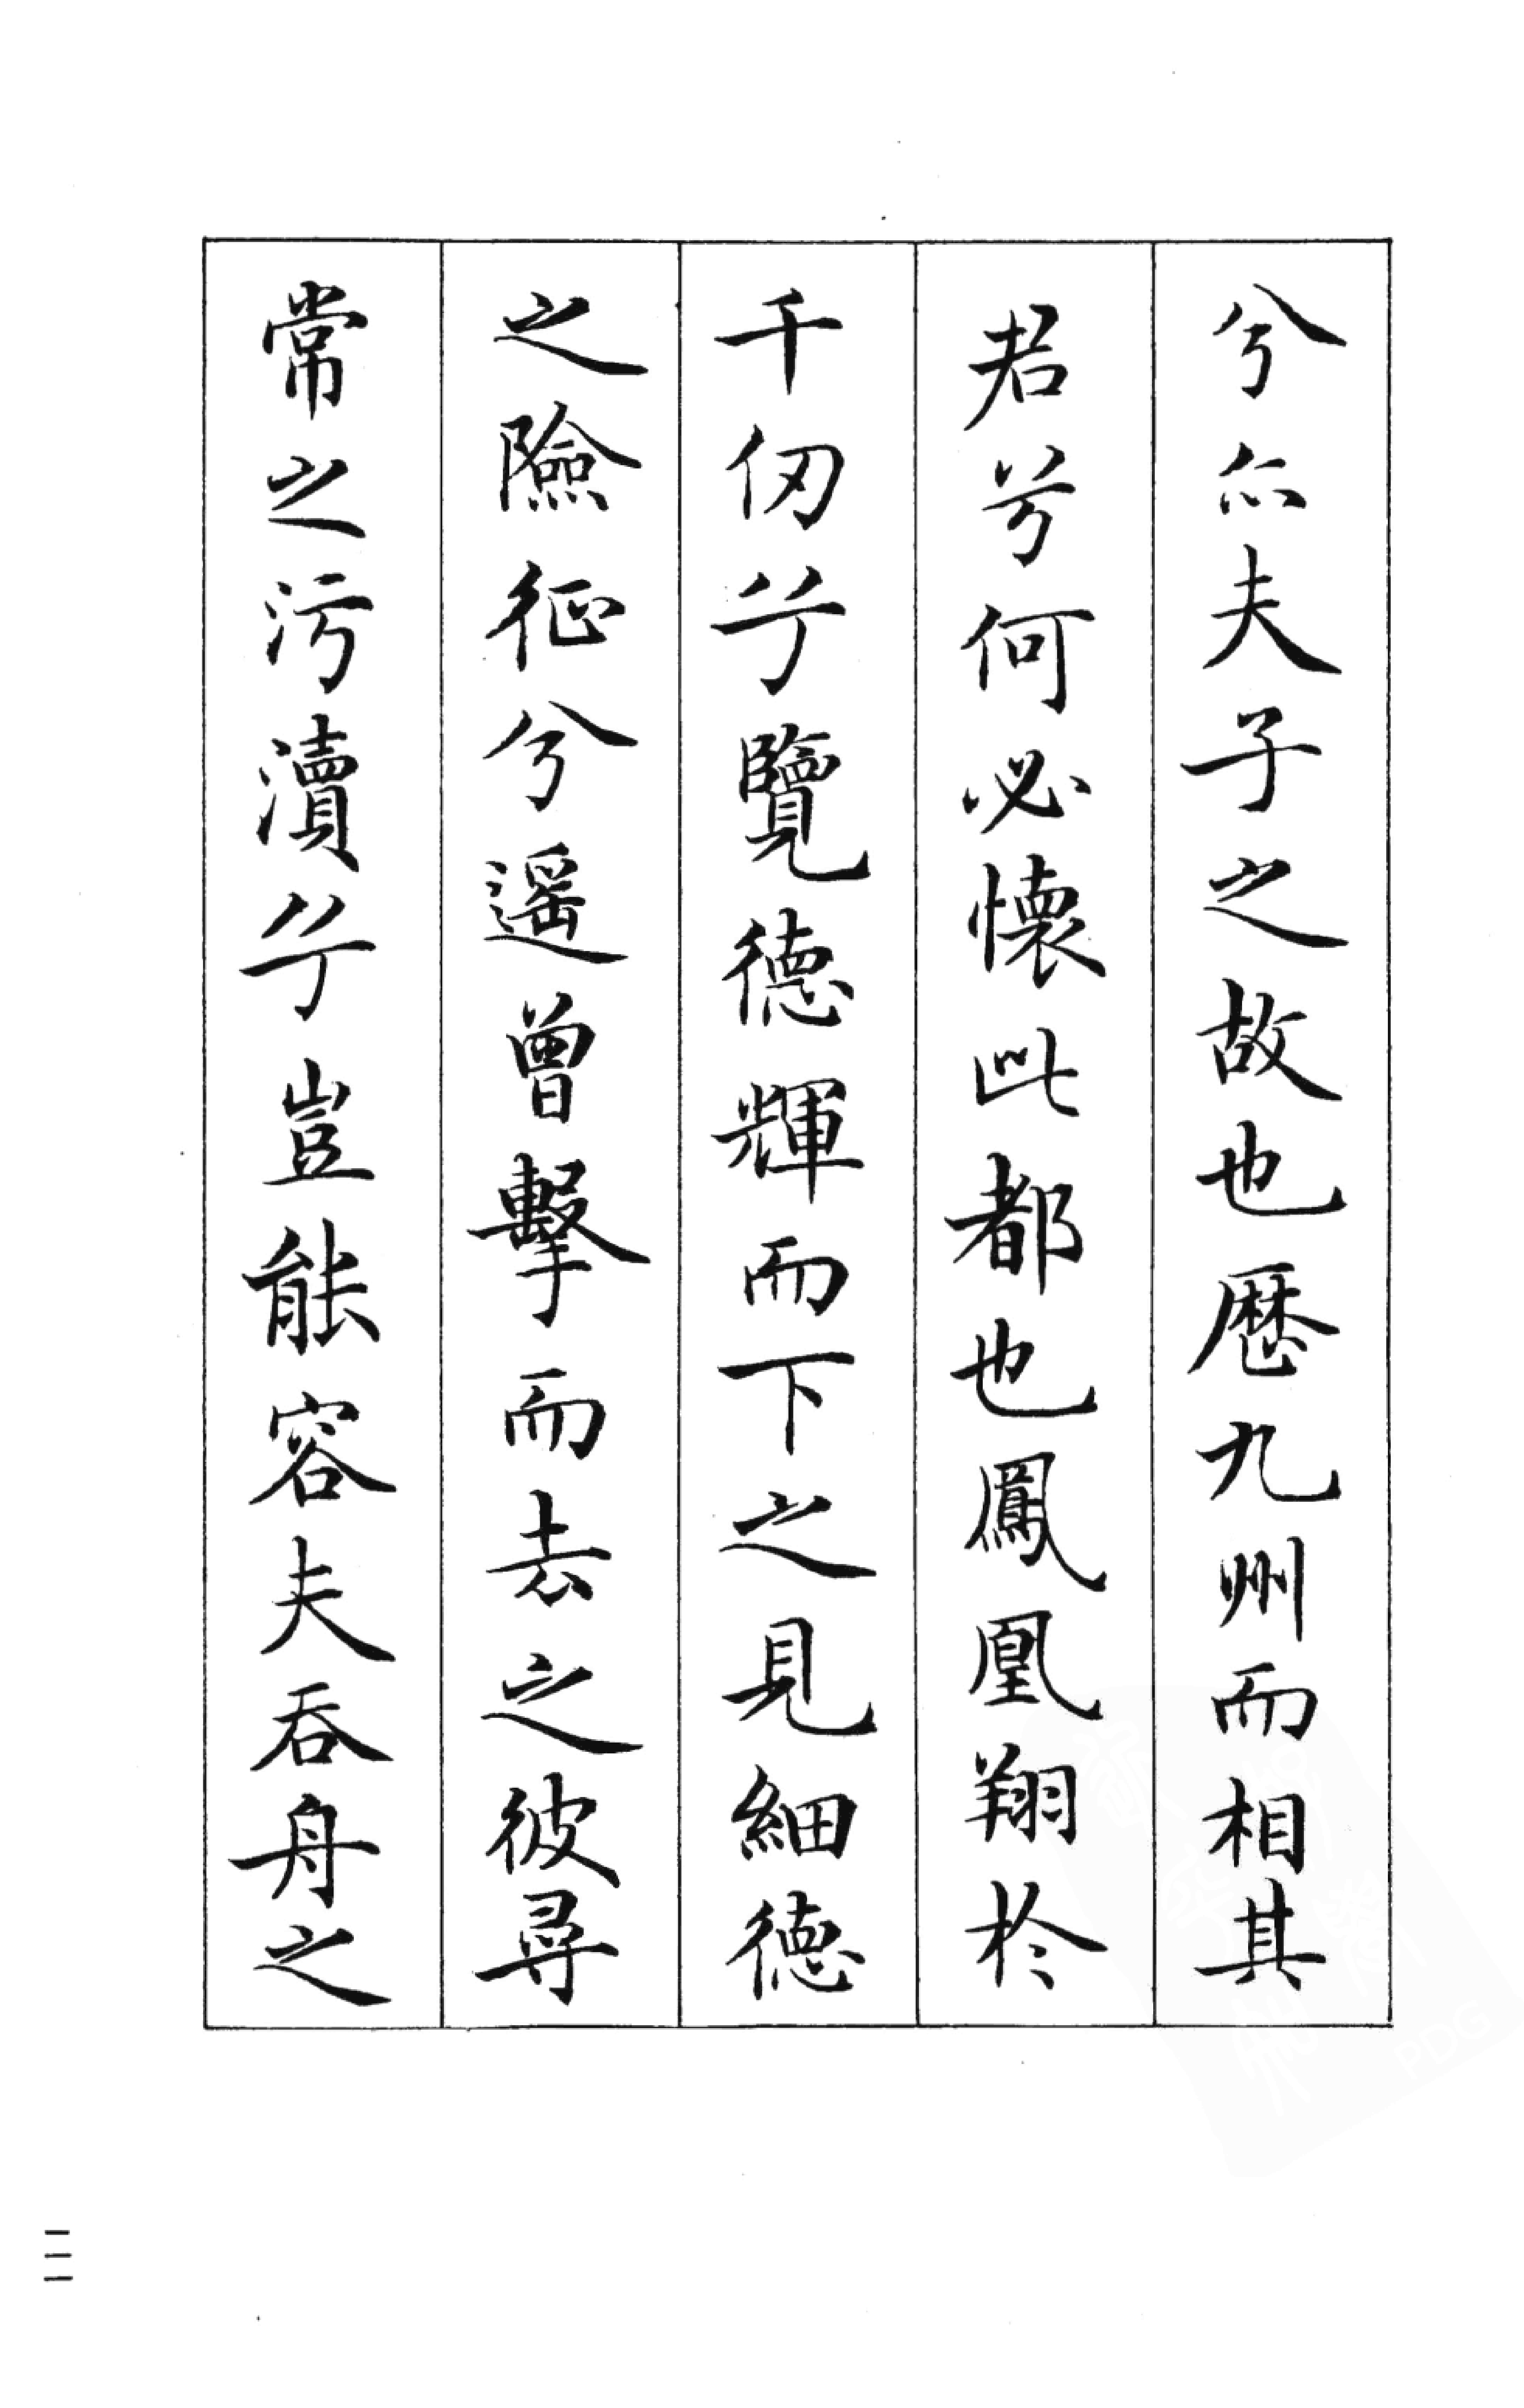 兮亦夫子之故也歴九州而相其
君兮何必懷此都也鳳凰翔於
千仞兮覽徳輝而下之見細徳
之險征兮遥曾擊而去之彼尋
常之污瀆兮豈能容夫吞舟之
PDG